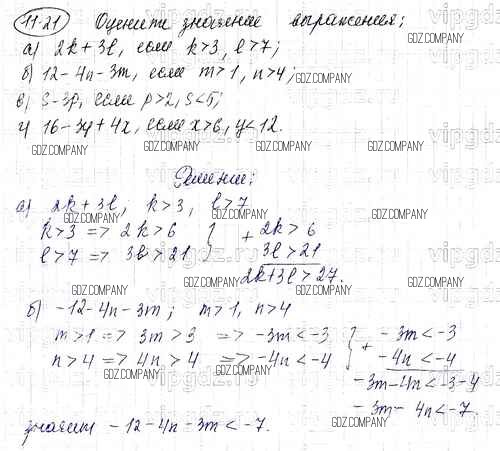 11.21 Оцените значение выражения;
а) 2k + 3l, если k>3, l>7;
б) 12-4n-3m, если m>1, n>4;
в) s-3p, если p>2, s<5;
г) 16-3y+4x, если x>6, y<12.
Решение:
а) 2k+3l; k>3, l>7
k>3 => 2k>6 } + 2k>6
l>7 => 3l>21 3l>21
2k+3l>27.
б) -12-4n-3m; m>1, n>4
m>1 => 3m>3 => -3m<-3 } + -3m<-3
n>4 => 4n>4 => -4n<-4 -4n<-4
-3m-4n<-3-4
-3m-4n<-7.
значит -12-4n-3m<-7.
GDZ.COMPANY
vipgdz.com